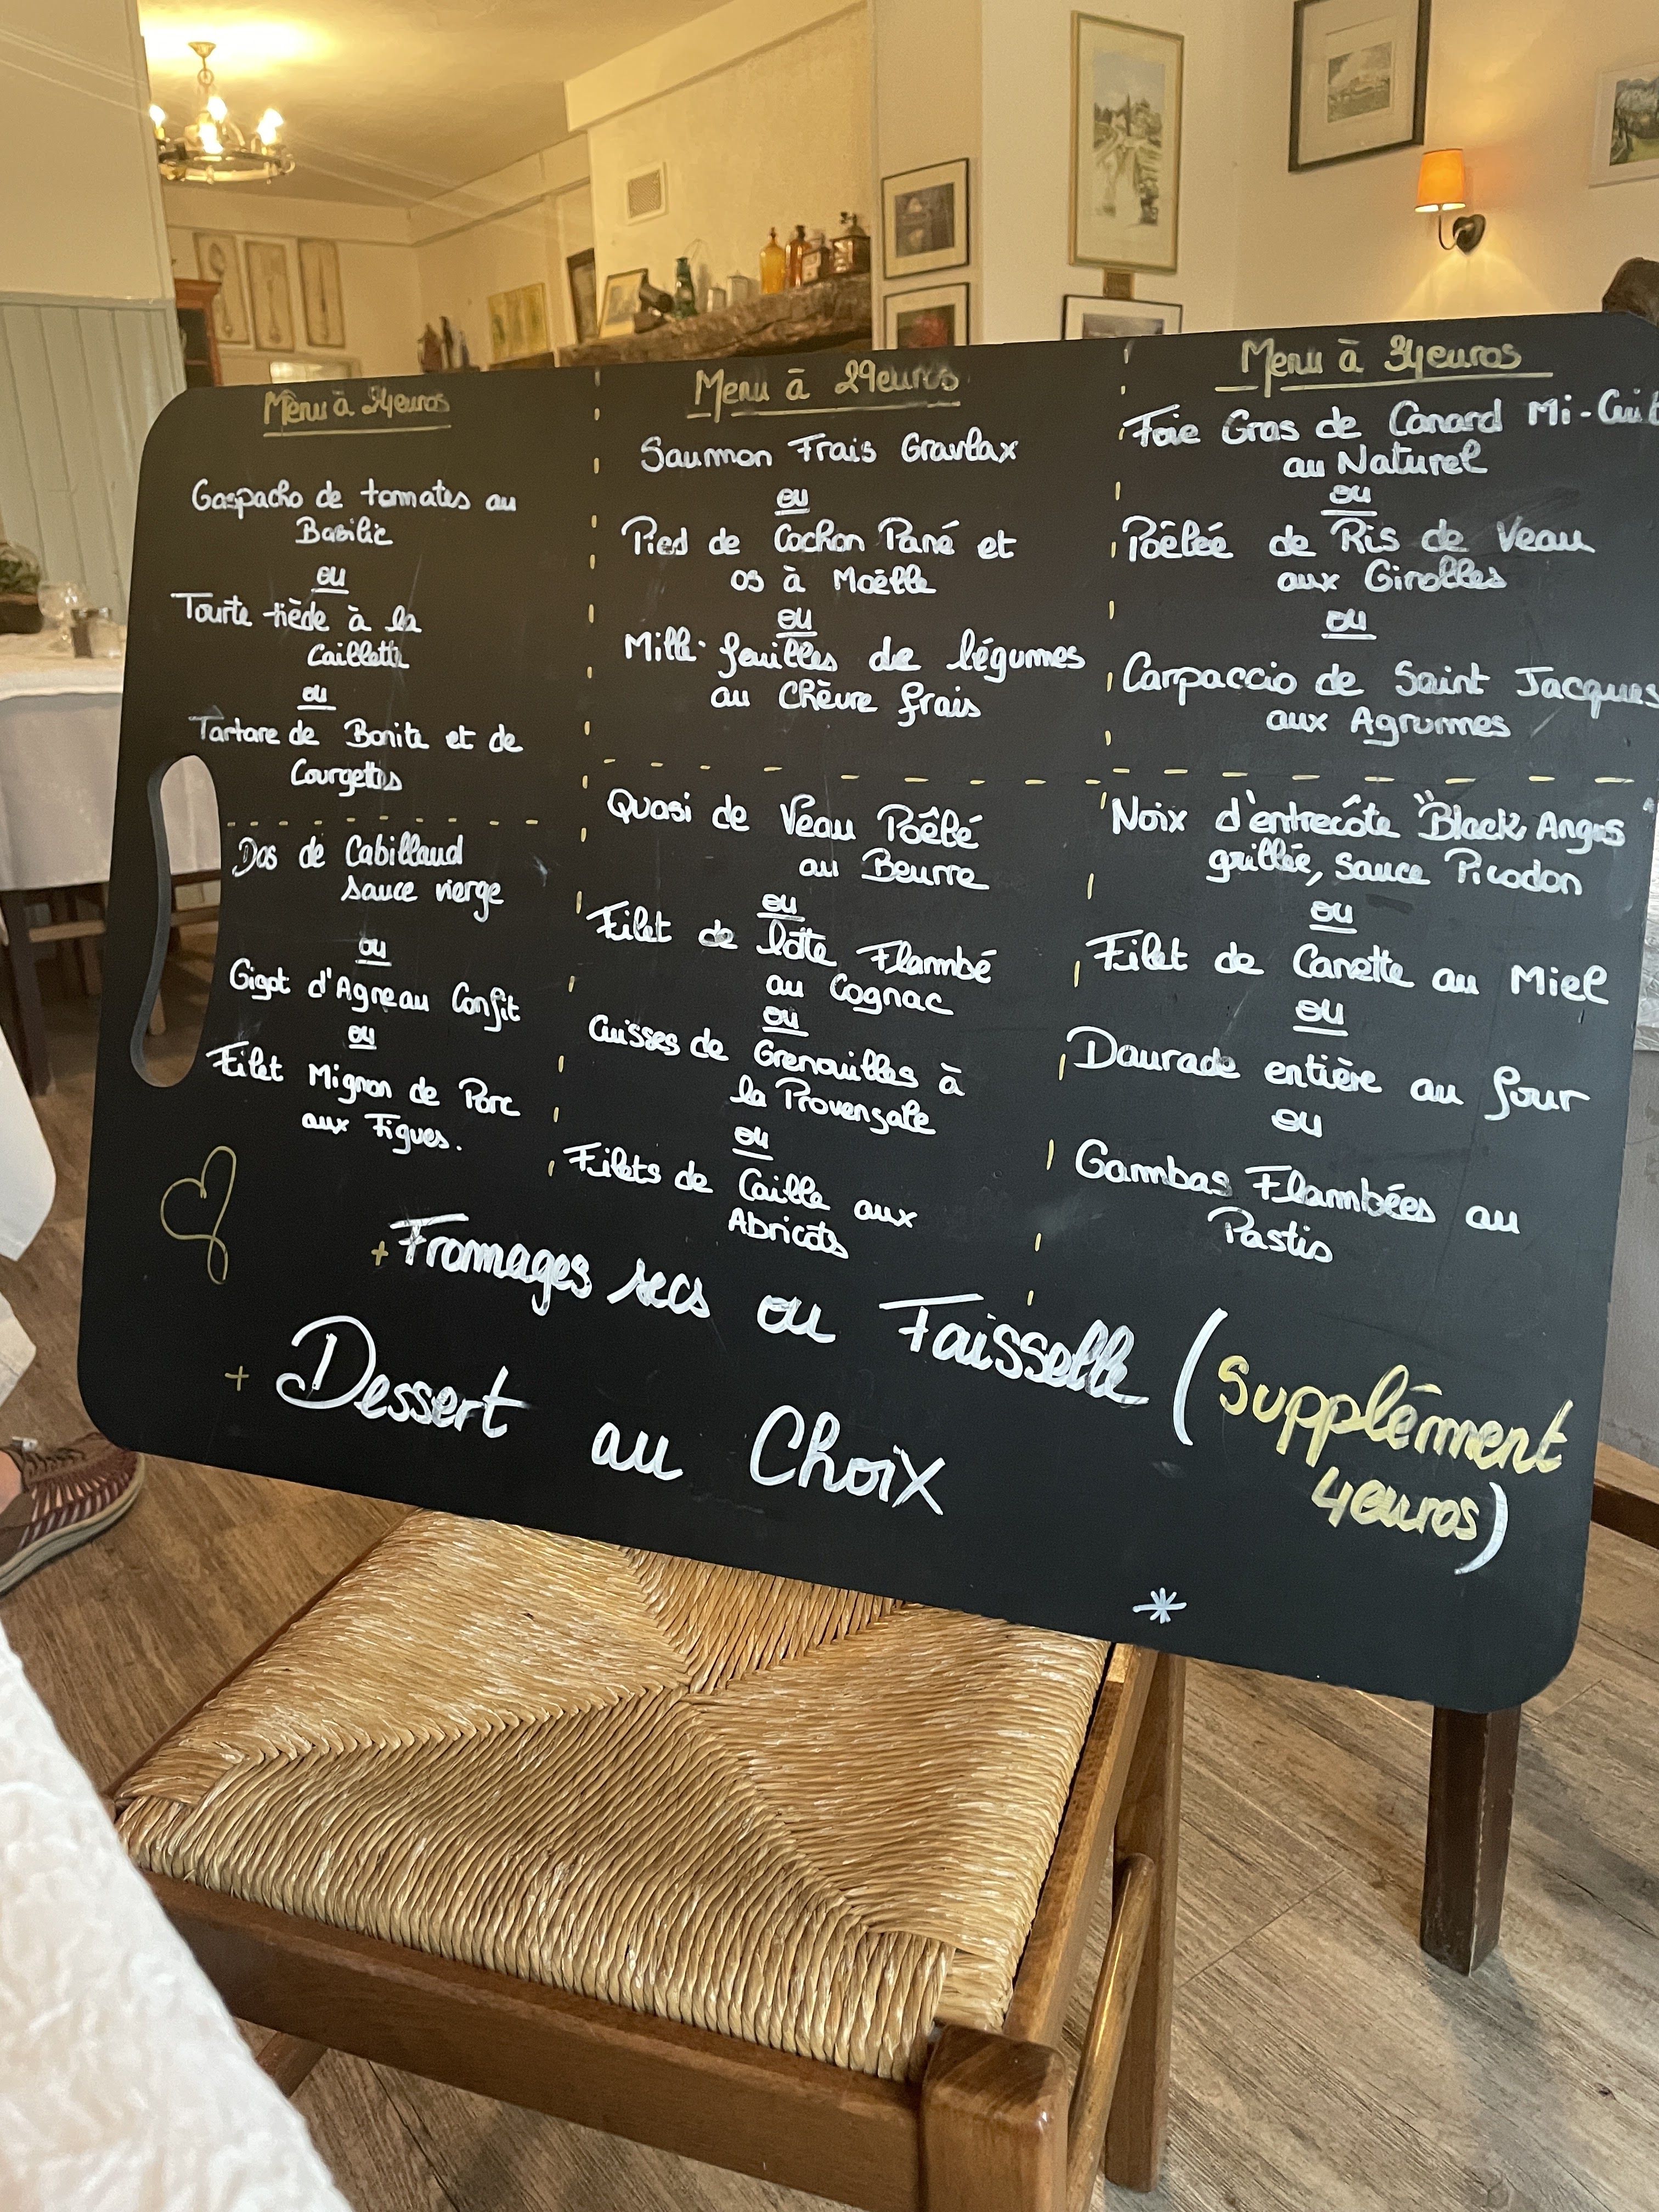 Menu à 24euros
Gaspacho de tomates au
Basilic
ou
Tourte tiède à la
Caillette
ou
Tartare de Bonite et de
Courgettes
Dos de Cabillaud
sauce vierge
ou
Gigot d'Agneau Confit
ou
Filet Mignon de Porc
aux Figues.
Menu à 29euros
Saumon Frais Gravlax
ou
Pied de Cochon Pané et
os à Moëlle
ou
Mille-feuilles de légumes
au Chèvre frais
Quasi de Veau Poêlé
au Beurre
ou
Filet de lotte Flambé
au Cognac
ou
Cuisses de Grenouilles à
la Provençale
ou
Filets de Caille aux
Abricots
Menu à 34euros
Foie Gras de Canard Mi-Cuit
au Naturel
ou
Poêlée de Ris de Veau
aux Girolles
ou
Carpaccio de Saint Jacques
aux Agrumes
Noix d'entrecôte "Black Angus
grillée, sauce Picodon
ou
Filet de Canette au Miel
ou
Daurade entière au four
ou
Gambas Flambées au
Pastis
+ Fromages secs ou Faisselle (Supplément
4euros)
+ Dessert au Choix
*